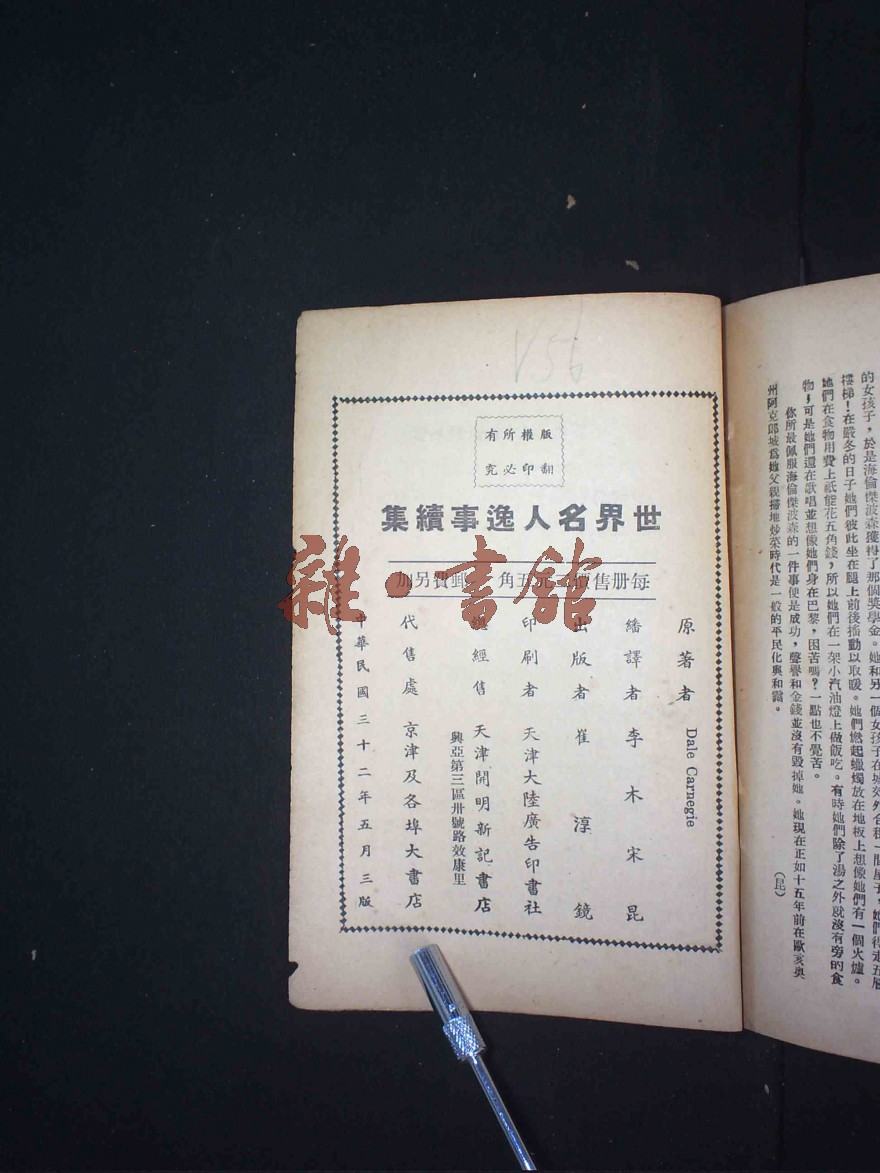 的女孩子，於是海倫傑波森獲得了那個獎學金。她和另一個女孩子在城郊外合租一間屋子，她們得走五層
樓梯！在嚴冬的日子她們彼此坐在腿上前後搖動以取暖。她們燃起蠟燭放在地板上想像她們有一個火爐。
她們在食物用費上祇能花五角錢，所以她們在一架小汽油燈上做飯吃。有時她們除了湯之外就沒有旁的食
物，可是她們還在歌唱並想像她們身在巴黎，困苦嗎？一點也不覺苦。
你所最佩服海倫傑波森的一件事便是成功，聲譽和金錢並沒有毀掉她。她現在正如十五年前在歐亥奧
州阿克郎城爲她父親掃地炒菜時代是一般的平民化與和靄。
（昆）
V56
版權所有
翻印必究
世界名人逸事續集
每册售價三元五角 郵費另加
原著者 Dale Carnegie
繙譯者 李木 宋昆
出版者 崔淳鏡
印刷者 天津大陸廣告印書社
總經售 天津開明新記書店
興亞第三區卅號路效康里
代售處 京津及各埠大書店
中華民國三十二年五月三版
雜·書館